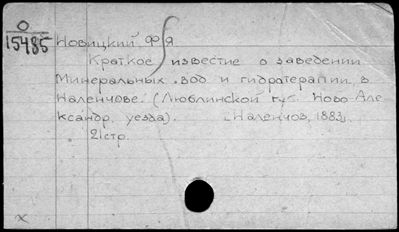 О
15485
Новицкий Ф Я.
Краткое известие о заведении
Минеральных вод и гидротерапии в
Наленчове. (Люблинской губ. Ново-Але
ксандр. уезда). Наленчов, 1883,
21стр.
x